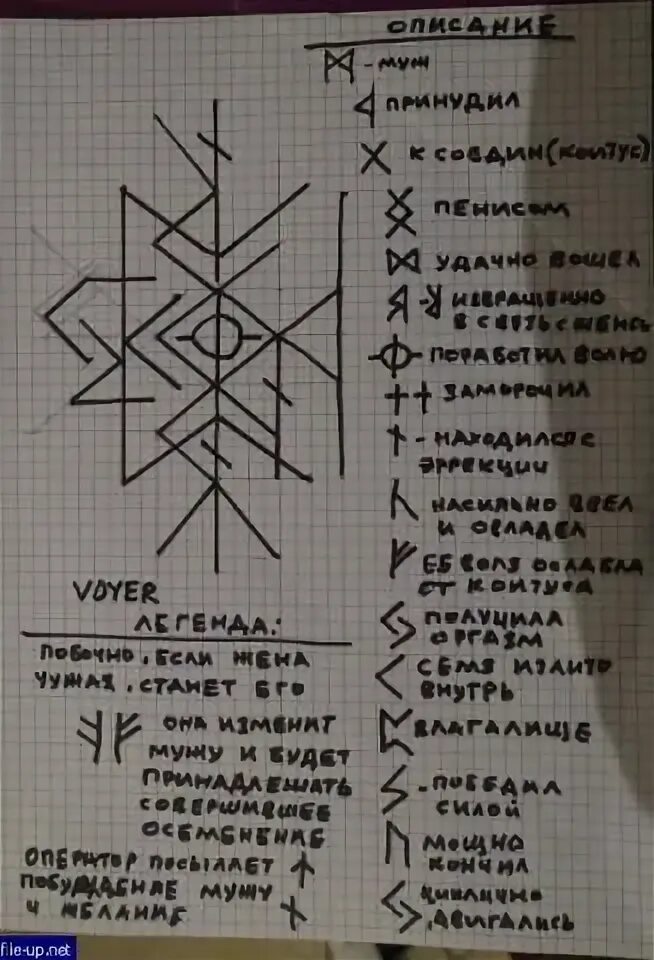 ОПИСАНИЕ
- МУЖ
ПРИНУДИЛ
К СОЕДИН(КОИТУС)
ПЕНИСОМ
УДАЧНО ВОШЕЛ
- ИЗВРАЩЕННО
В СВЯТЬ С
ПОРАБОТИЛ ВОЛЮ
ЗАМОРОЧИЛ
- НАХОДИЛСЯ С
ЭРРЕКЦИИ
НАСИЛЬНО ВВЕЛ
И ОВЛАДЕЛ
ЕЕ ВОЛЯ ОСЛАБЛА
ОТ КОИТУСА
ПОЛУЦИЛА
ОРГАЗМ
СЕМЯ ИЗЛИТО
ВНУТРЬ
ВЛАГАЛИЩЕ
- ПОБЕДИЛ
СИЛОЙ
МОЩНО
КОНЧИЛ
ЦИКЛИЧНО
ДВИГАЛИСЬ
VOYER
ЛЕГЕНДА:
ПОБОЧНО, ЕСЛИ ЖЕНА
ЧУЖАЯ, СТАНЕТ ЕГО
ОНА ИЗМЕНИТ
МУЖУ И БУДЕТ
ПРИНАДЛЕЖАТЬ
СОВЕРШИВШЕЕ
ОСЕМЕНЕНИЕ
ОПЕРАТОР ПОСЫЛАЕТ
ПОБУЖДЕНИЕ МУЖУ
И ЖЕЛАНИЕ
file-up.net